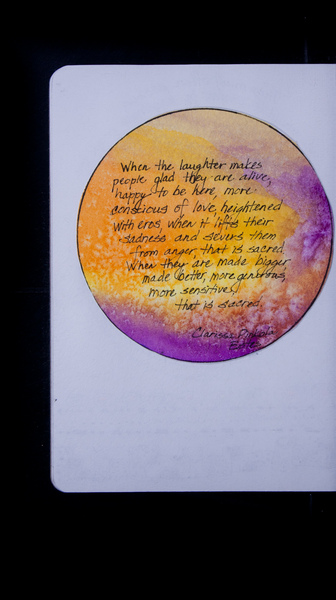 When the laughter makes
people glad they are alive,
happy to be here, more
conscious of love, heightened
with eros, when it lifts their
sadness and severs them
from anger, that is sacred.
When they are made bigger
made better, more generous,
more sensitive,
that is sacred.
Clarissa Pinkola
Estés